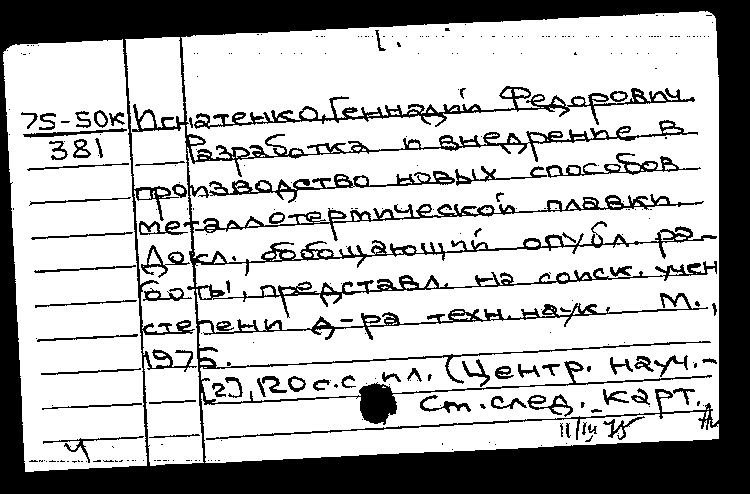 75-50к Игнатенко, Геннадий Федорович.
381 Разработка и внедрение в
производство новых способов
металлотермической плавки.
Докл., обобщающий опубл. ра-
боты, представл. на соиск. учен
степени д-ра техн. наук. М.,
1975.
[2], 120 с. с ил. (Центр. науч.-
См. след. карт.
11/IV 75
ч